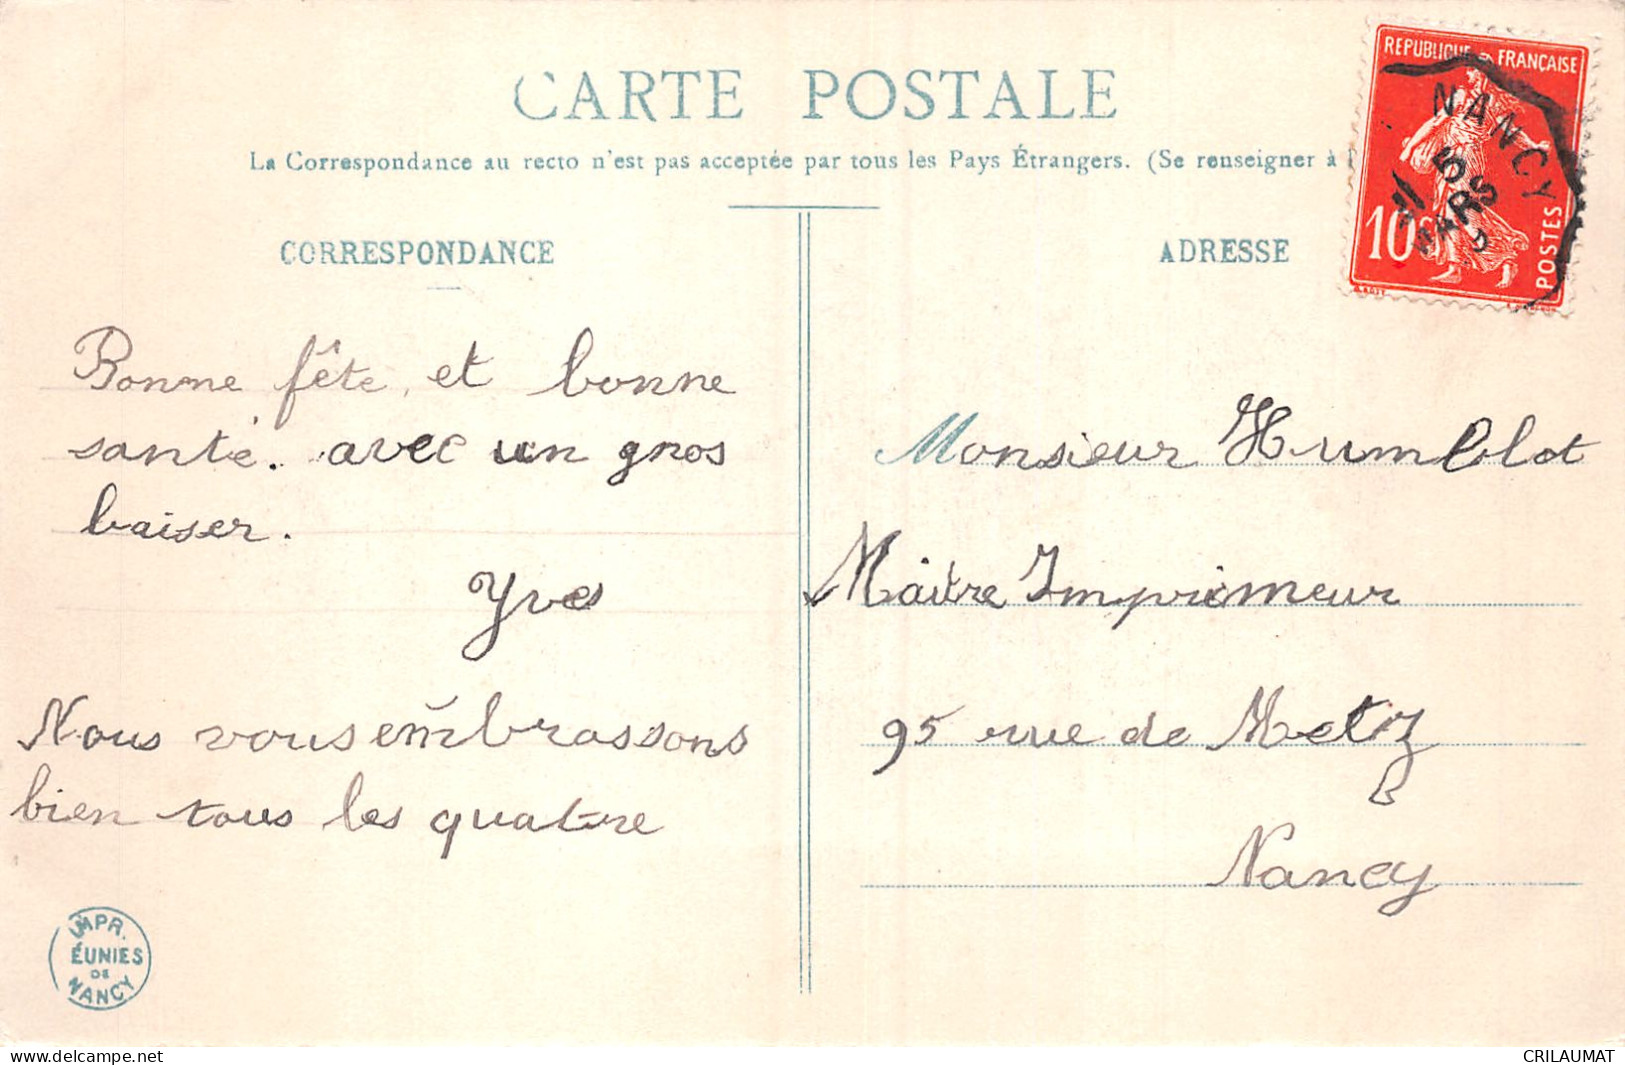 CARTE POSTALE
La Correspondance au recto n'est pas acceptée par tous les Pays Étrangers. (Se renseigner à
CORRESPONDANCE
ADRESSE
REPUBLIQUE FRANÇAISE
10c
POSTES
NANCY
5
MARS
Bonne fête, et bonne
santé. avec un gros
baiser.
Yves
Nous vous embrassons
bien tous les quatre
Monsieur Humblot
Maître Imprimeur
95 rue de Metz
Nancy
IMPR.
ÉUNIES
DE
NANCY
www.delcampe.net
CRILAUMAT